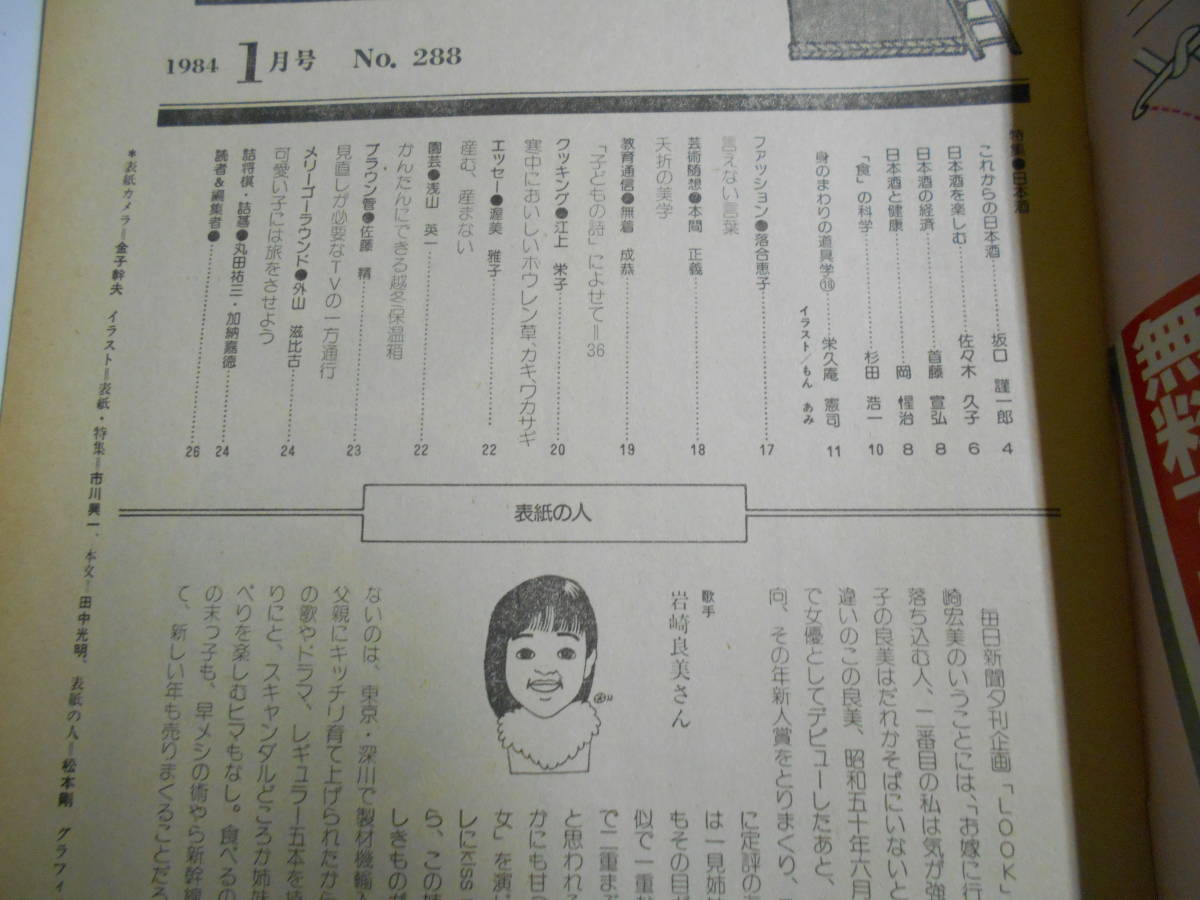 1984 1月号 No. 288
特集●日本酒
これからの日本酒……坂口 謹一郎 4
日本酒を楽しむ……佐々木 久子 6
日本酒の経済……首藤 宣弘 8
日本酒と健康……岡 惺治 8
「食」の科学……杉田 浩一 10
身のまわりの道具学⑱……栄久庵 憲司 11
イラスト/もん あみ
ファッション●落合恵子……17
言えない言葉
芸術随想●本間 正義……18
夭折の美学
教育通信●無着 成恭……19
「子どもの詩」によせて=36
クッキング●江上 栄子……20
寒中においしいホウレン草、カキ、ワカサギ
エッセー●渥美 雅子……22
産む、産まない
園芸●浅山 英一……22
かんたんにできる越冬保温箱
ブラウン管●佐藤 精……23
見直しが必要なTVの一方通行
メリーゴーラウンド●外山 滋比古……24
可愛い子には旅をさせよう
詰将棋・詰碁●丸田祐三・加納嘉徳……24
読者&編集者●……26
*表紙カメラ=金子幹夫 イラスト=表紙・特集=市川興一、本文=田中光明、表紙の人=松本剛 グラフィ
表紙の人
歌手
岩崎良美さん
毎日新聞夕刊企画「LOOK」
崎宏美のいうことには、「お嫁に行
落ち込む人、二番目の私は気が強
子の良美はだれかそばにいないと
違いのこの良美、昭和五十年六月
で女優としてデビューしたあと、
向、その年新人賞をとりまくり、
に定評の
は一見姉
もその目
似で一重
で二重ま
と思われる
かにも甘
女」を演じ
しにKISS
ら、この姉
しきものが
ないのは、東京・深川で製材機輸入
父親にキッチリ育て上げられたから
の歌やドラマ、レギュラー五本を
りにと、スキャンダルどころか姉妹
べりを楽しむヒマもなし。食べるの
の末っ子も、早メシの術やら新幹線
て、新しい年も売りまくることだろ
無料